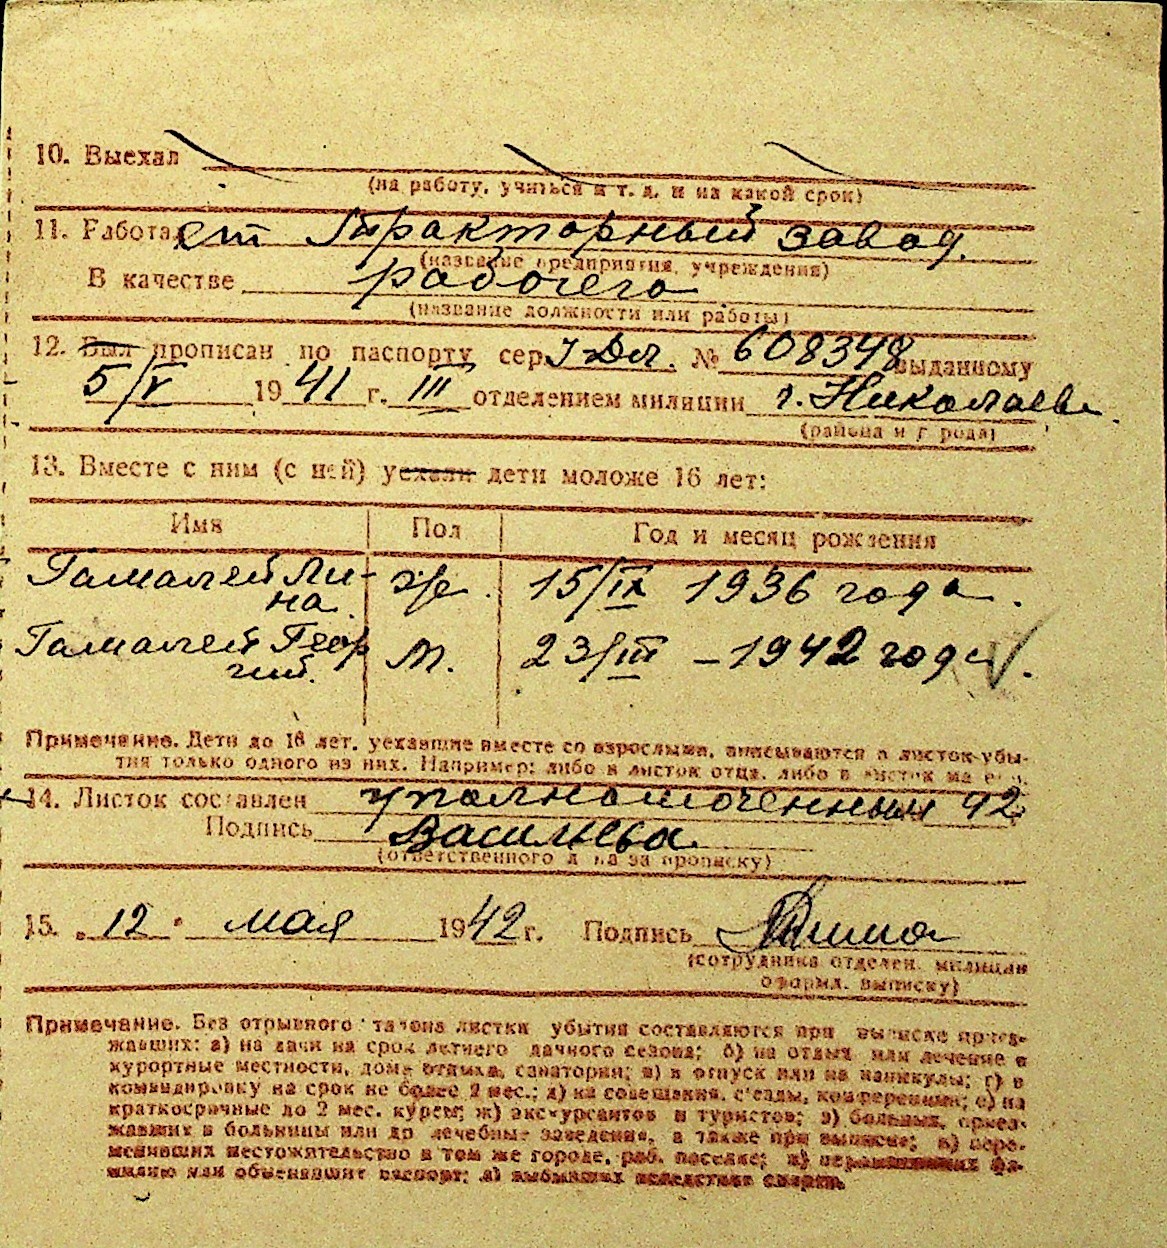 10. Выехал
(на работу, учиться и т. д. и на какой срок)
11. Работает Тракторный завод.
(название предприятия, учреждения)
В качестве рабочего
(название должности или работы)
12. Был прописан по паспорту сер. № 608348 выданному
5/V 1941 г. III отделением милиции г. Николаев
(района и города)
13. Вместе с ним (с ней) уехали дети моложе 16 лет:
Имя Пол Год и месяц рождения
Гамалей Ли- ж. 15/IX 1936 года.
на
Гамалей Геор м. 23/III – 1942 года.
гий.
Примечание. Дети до 16 лет, уехавшие вместе со взрослыми, вписываются в листок убы-
тия только одного из них. Например: либо в листок отца, либо в листок матери.
14. Листок составлен уполномоченным 42
Подпись Васильева
(ответственного лица за прописку)
15. „12" мая 1942 г. Подпись
(сотрудника отделен. милиции
оформл. выписку)
Примечание. Без отрывного талона листки убытия составляются при выписке приез-
жавших: а) на дачи на срок летнего дачного сезона; б) на отдых или лечение в
курортные местности, дома отдыха, санатории; в) в отпуск или на каникулы; г) в
командировку на срок не более 2 мес.; д) на совещания, съезды, конференции; е) на
краткосрочные до 2 мес. курсы; ж) экскурсантов и туристов; з) больных, приез-
жавших в больницы или др лечебные заведения, а также при выписке; и) пере-
менивших местожительство в том же городе, раб. поселке; к) переменивших фа-
милию или обменявших паспорт; л) выбывших вследствие смерти.